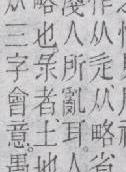 从辵从略省
淺人所亂耳人
略也彔者土地
从三字會意